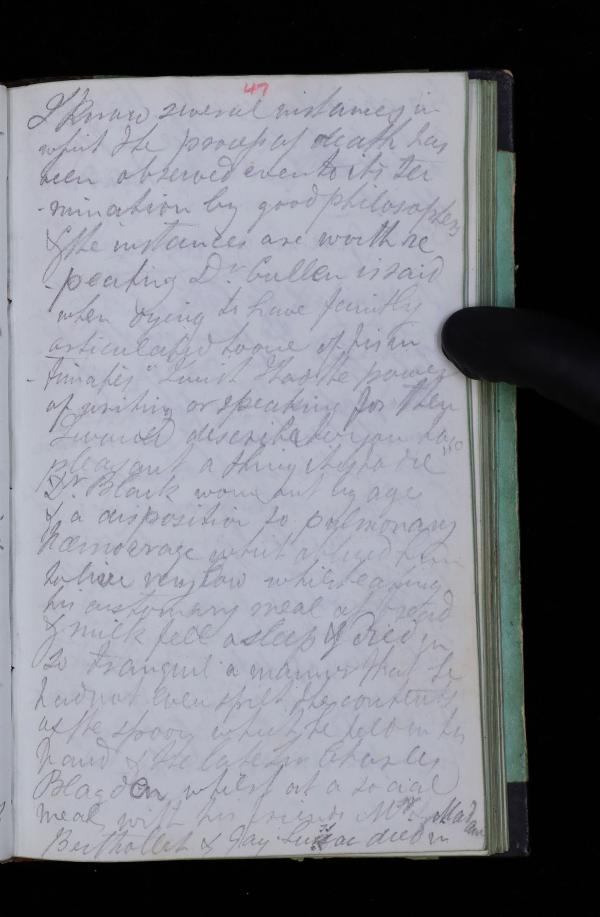 47
I know several instances in
which the process of death has
been observed even to its ter
-mination by good philosophers
& the instances are worth re
-peating Dr. Cullen is said
when dying to have faintly
articulated to one of his in
-timates "I wish I had the power
of writing or speaking for then
I would describe to you how
pleasant a thing it is to die"
Dr Black worn out by age
& a disposition to pulmonary
hæmorrage which obliged him
to live very low whilst eating
his customary meal of bread
& milk fell asleep & died in
so tranquil a manner that he
had not even spilt the contents
of the spoon which he held in his
hand & the late Sir Charles
Blagden whilst at a social
meal with his friends Mr & Madam
Berthollet & Gay Lussac died in